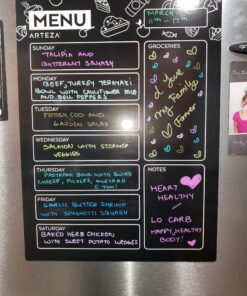 MENU
ARTEZA
MARCH
11TH - 17TH
SUNDAY
TALIPIA AND
BUTTERNUT SQUASH
MONDAY
BEEF, TURKEY TERIYAKI
BOWL WITH CAULIFLOWER RICE
AND BELL PEPPERS
TUESDAY
FROSH COD AND
GARDEN SALAD
WEDNESDAY
SALMON WITH STEAMED
VEGGIES
THURSDAY
PASTRAMI BOWL WITH SWISS
CHEESE, PICKLES, MUSTARD
THURSDAY
FRIDAY
GARLIC BUTTER SHRIMP
WITH SPAGHETTI SQUASH
SATURDAY
BAKED HERB CHICKEN
WITH SWEET POTATO WEDGES
GROCERIES
I Love
my Family
NOTES
HEART
HEALTHY
/
LO CARB
HAPPY, HEALTHY
BODY!